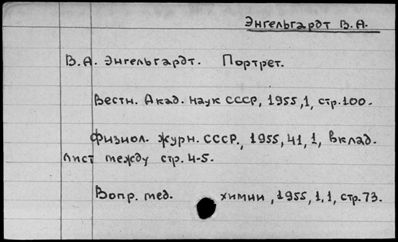 Энгельгардт В.А.
В.А. Энгельгардт. Портрет.
Вестн. Акад. наук СССР, 1955, 1, стр. 100.
Физиол. журн. СССР, 1955, 41, 1, вклад.
лист между стр. 4-5.
Вопр. мед. химии, 1955, 1, 1, стр. 73.